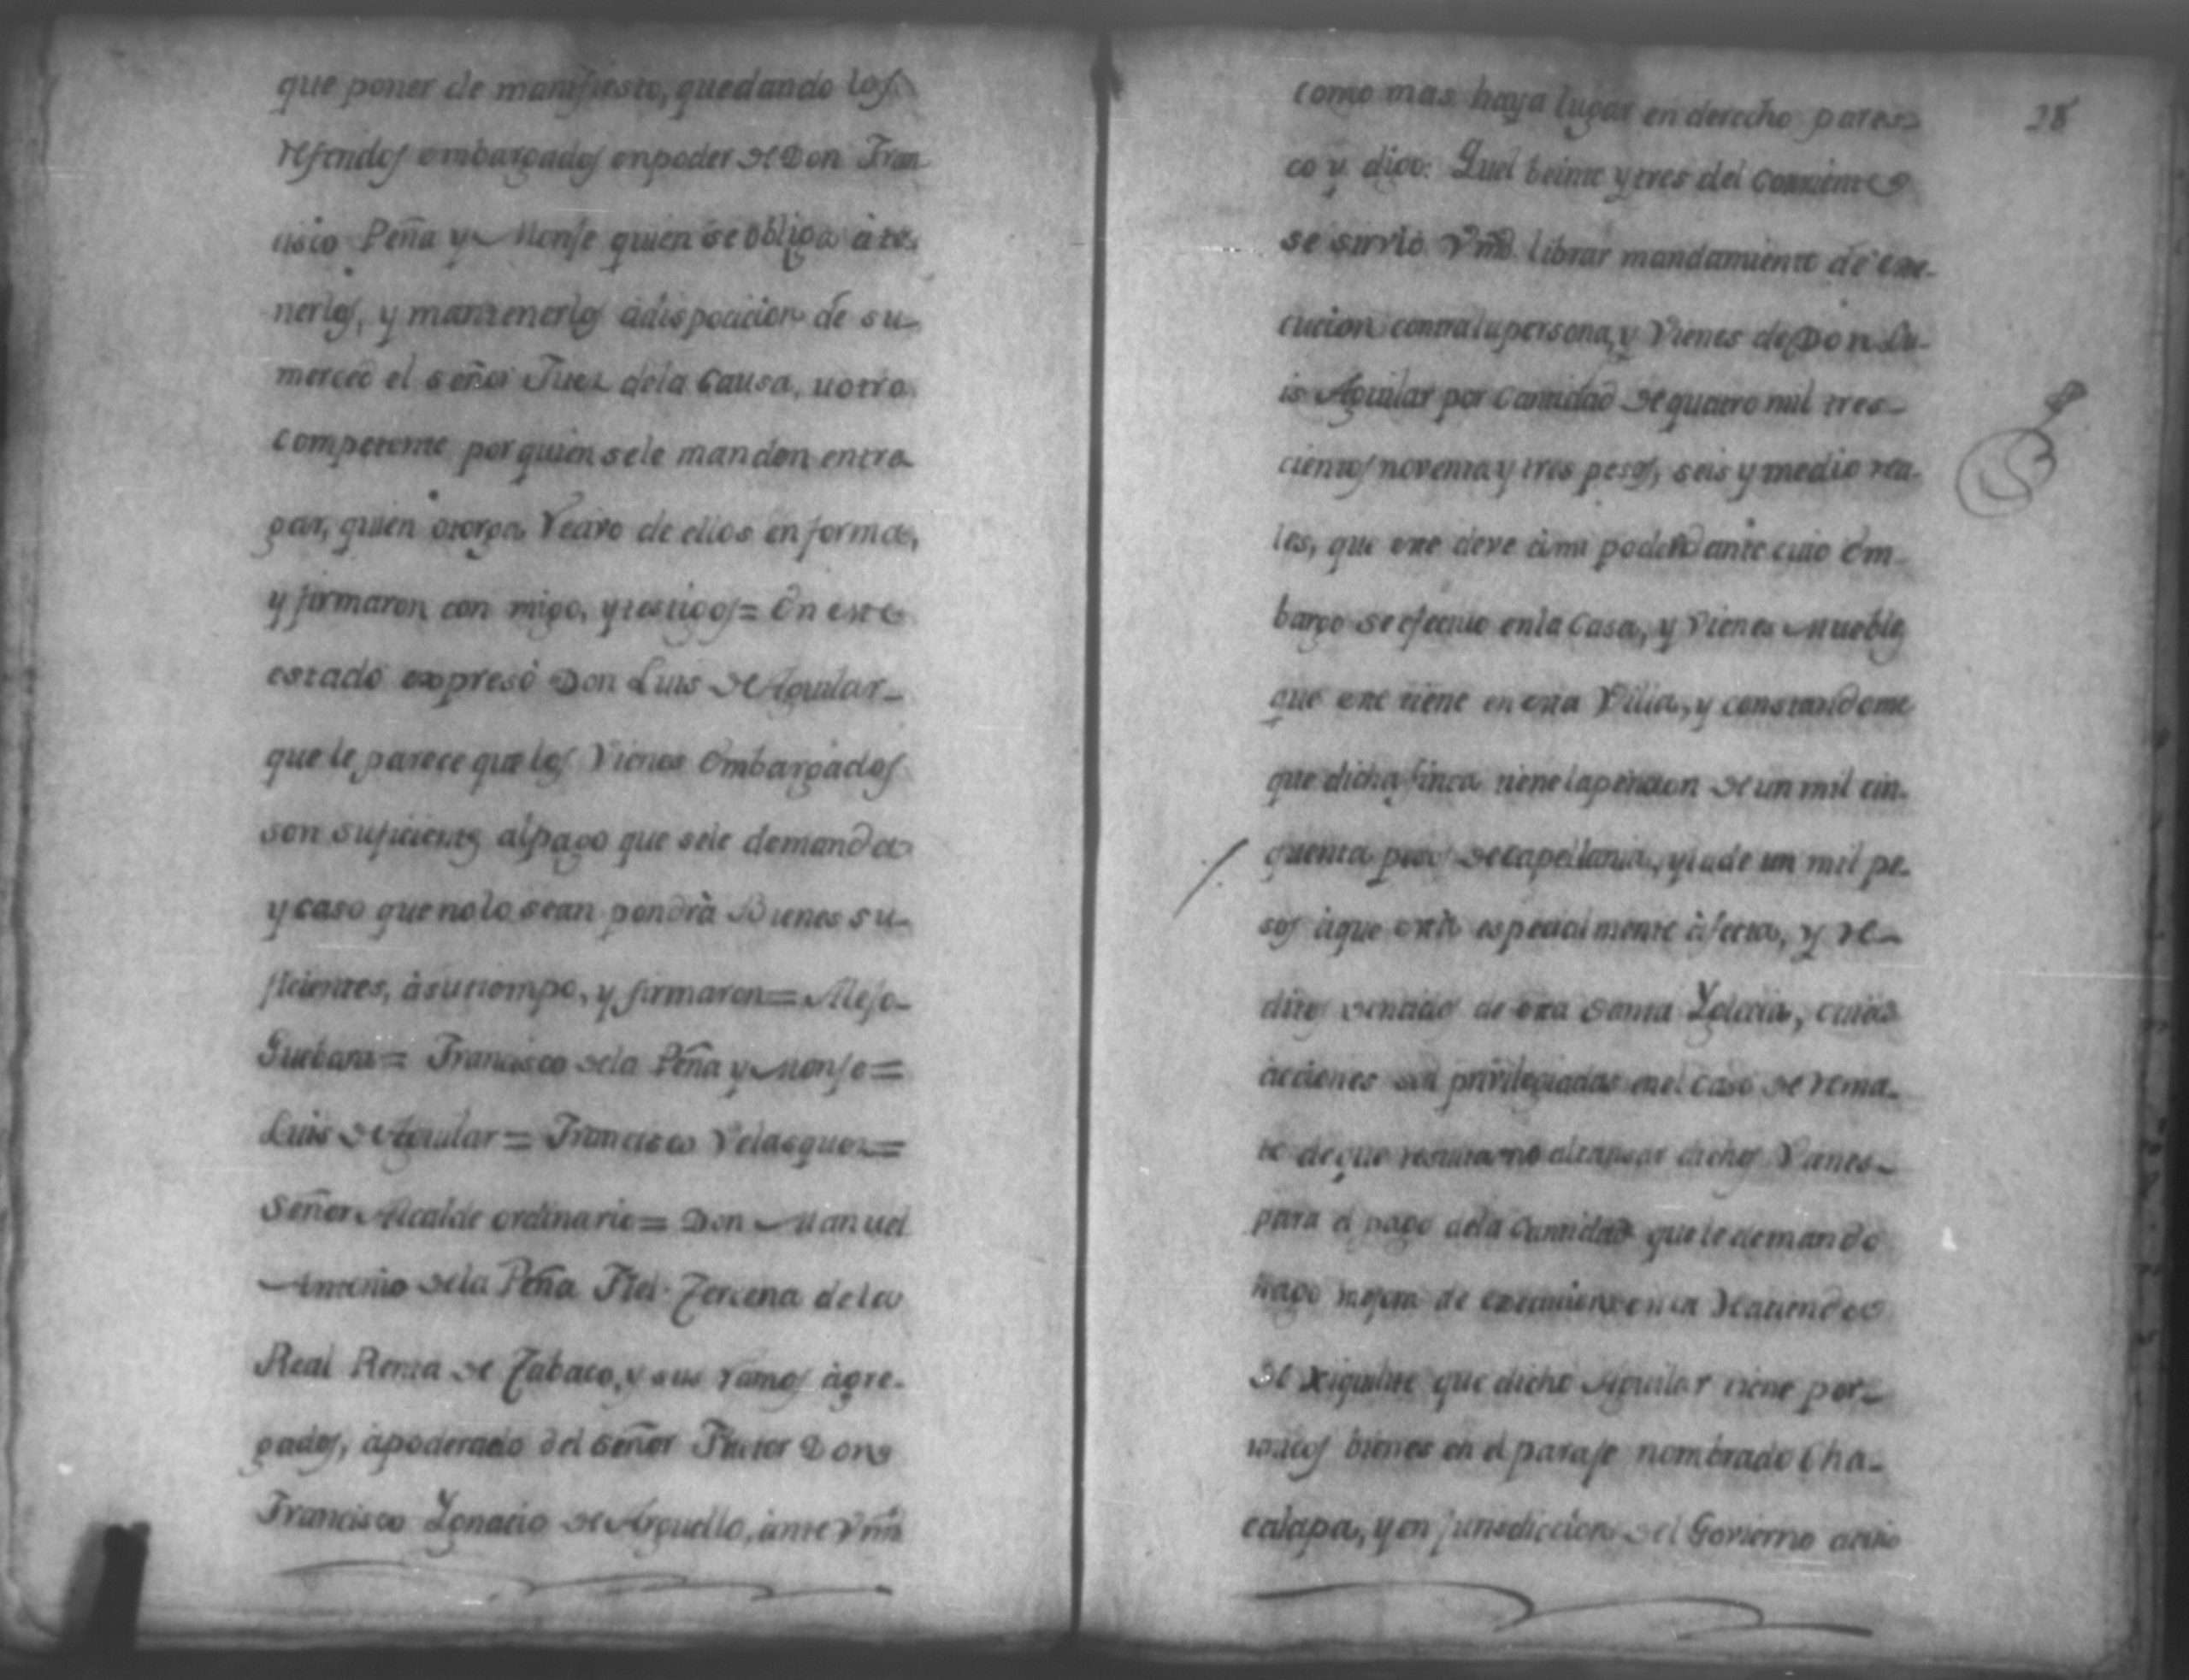 que poner de manifiesto, quedando los
referidos embargados en poder de Don Fran
cisco Peña y Monje quien se obliga à te-
nerlos, y mantenerlos à disposicion de su
merced el señor Juez dela Causa, u otro
competente por quien sele mandon entre
gar, quien otorga Recivo de ellos en forma,
y firmaron con migo, y testigos = En este
estado expresò Don Luis de Aguilar
que le parece que los Vienes Embargados
son suficientes al pago que sele demanda
y caso que no lo sean pondrà Bienes su-
ficientes, à su tiempo, y firmaron = Mejo-
Guebara = Francisco dela Peña y Monje =
Luis de Aguilar = Francisco Velasquez =
Señor Alcalde ordinario = Don Manuel
Antonio dela Peña Fiel Tercena dela
Real Renta de Tabaco, y sus ramos àgre-
gados, àpoderado del señor Factor Don
Francisco Ygnacio de Arguello, ante Vmd
28
como mas haya lugar en derecho pares-
co y digo: Quel beinte y tres del Corriente
se sirvio Vmd. librar mandamiento de exe-
cucion contra la persona, y Vienes de Don Lu-
is Aguilar por Cantidad de quatro mil tres-
cientos noventa y tres pesos, seis y medio rea-
les, que este deve à mi poderdante cuio Em-
bargo se efectuo en la Casa, y Vienes Muebles
que este tiene en esta Villa, y constandome
que dicha finca tiene la pencion de un mil cin-
quenta pesos de capellania, y la de un mil pe-
sos à que està especialmente àfecta, y re-
ditos de esta Santa Yglecia, cuias
acciones son privilegiadas en el caso de rema-
te de que resultarà no alcansar dichos Vienes
para el pago dela Cantidad que le demando
hago mejora de execucion en la Hacienda
de Xiquilite que dicho Aguilar tiene por
bienes en el paraje nombrado Cha-
calapa, y en jurisdiccion del Govierno